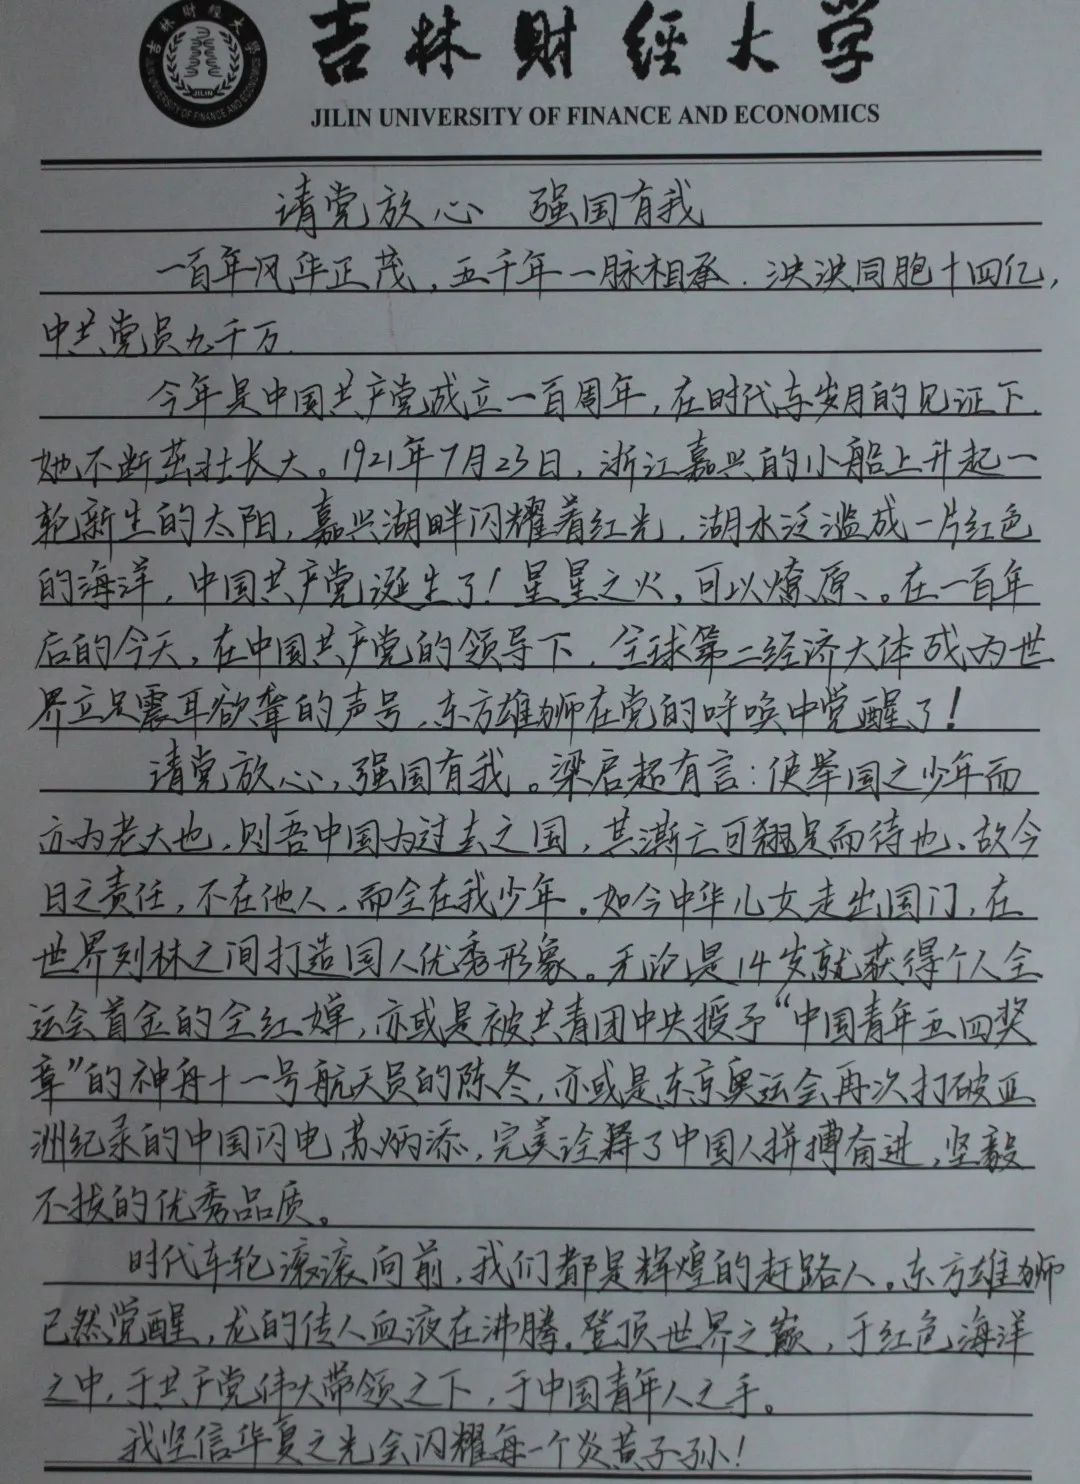 吉林财经大学
JILIN UNIVERSITY OF FINANCE AND ECONOMICS
吉林财经大學
JILIN
JILIN UNIVERSITY OF FINANCE AND ECONOMICS
请党放心 强国有我
一百年风华正茂，五千年一脉相承.泱泱同胞十四亿，
中共党员九千万.
今年是中国共产党成立一百周年，在时代与岁月的见证下.
她不断茁壮长大。1921年7月23日，浙江嘉兴的小船上升起一
轮新生的太阳，嘉兴湖畔闪耀着红光，湖水泛滥成一片红色
的海洋，中国共产党诞生了！星星之火，可以燎原、。在一百年
后的今天，在中国共产党的领导下，全球第二经济大体成为世
界立足震耳欲聋的声号，东方雄狮在党的呼唤中觉醒了！
请党放心，强国有我。梁启超有言：使举国之少年而
亦为老大也，则吾中国为过去之国，其澌亡可翘足而待也、故今
日之责任，不在他人，而全在我少年。如今中华儿女走出国门，在
世界列林之间打造国人优秀形象。无论是14岁就获得个人全
运会首金的全红婵，亦或是被共青团中央授予“中国青年五四奖
章”的神舟十一号航天员的陈冬，亦或是东京奥运会再次打破亚
洲纪录的中国闪电苏炳添，完美诠释了中国人拼搏奋进，坚毅
不拔的优秀品质。
时代车轮滚滚向前，我们都是辉煌的赶路人。东方雄狮
已然觉醒，龙的传人血液在沸腾。登顶世界之巅，于红色海洋
之中，于共产党伟大带领之下，于中国青年人之手。
我坚信华夏之光会闪耀每一个炎黄子孙！